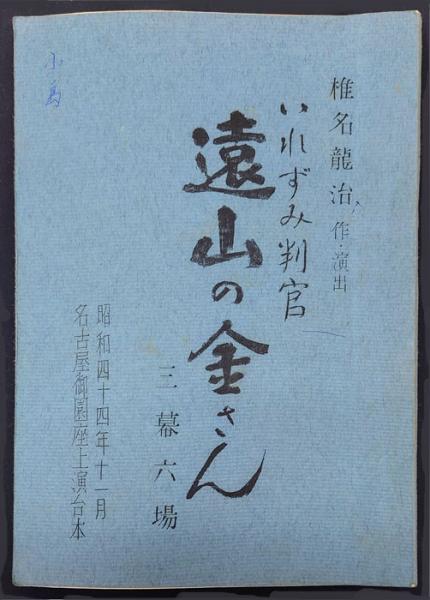 椎名龍治 作・演出
いれずみ判官
遠山の金さん
三幕六場
昭和四十四年十一月
名古屋御園座上演台本
小島